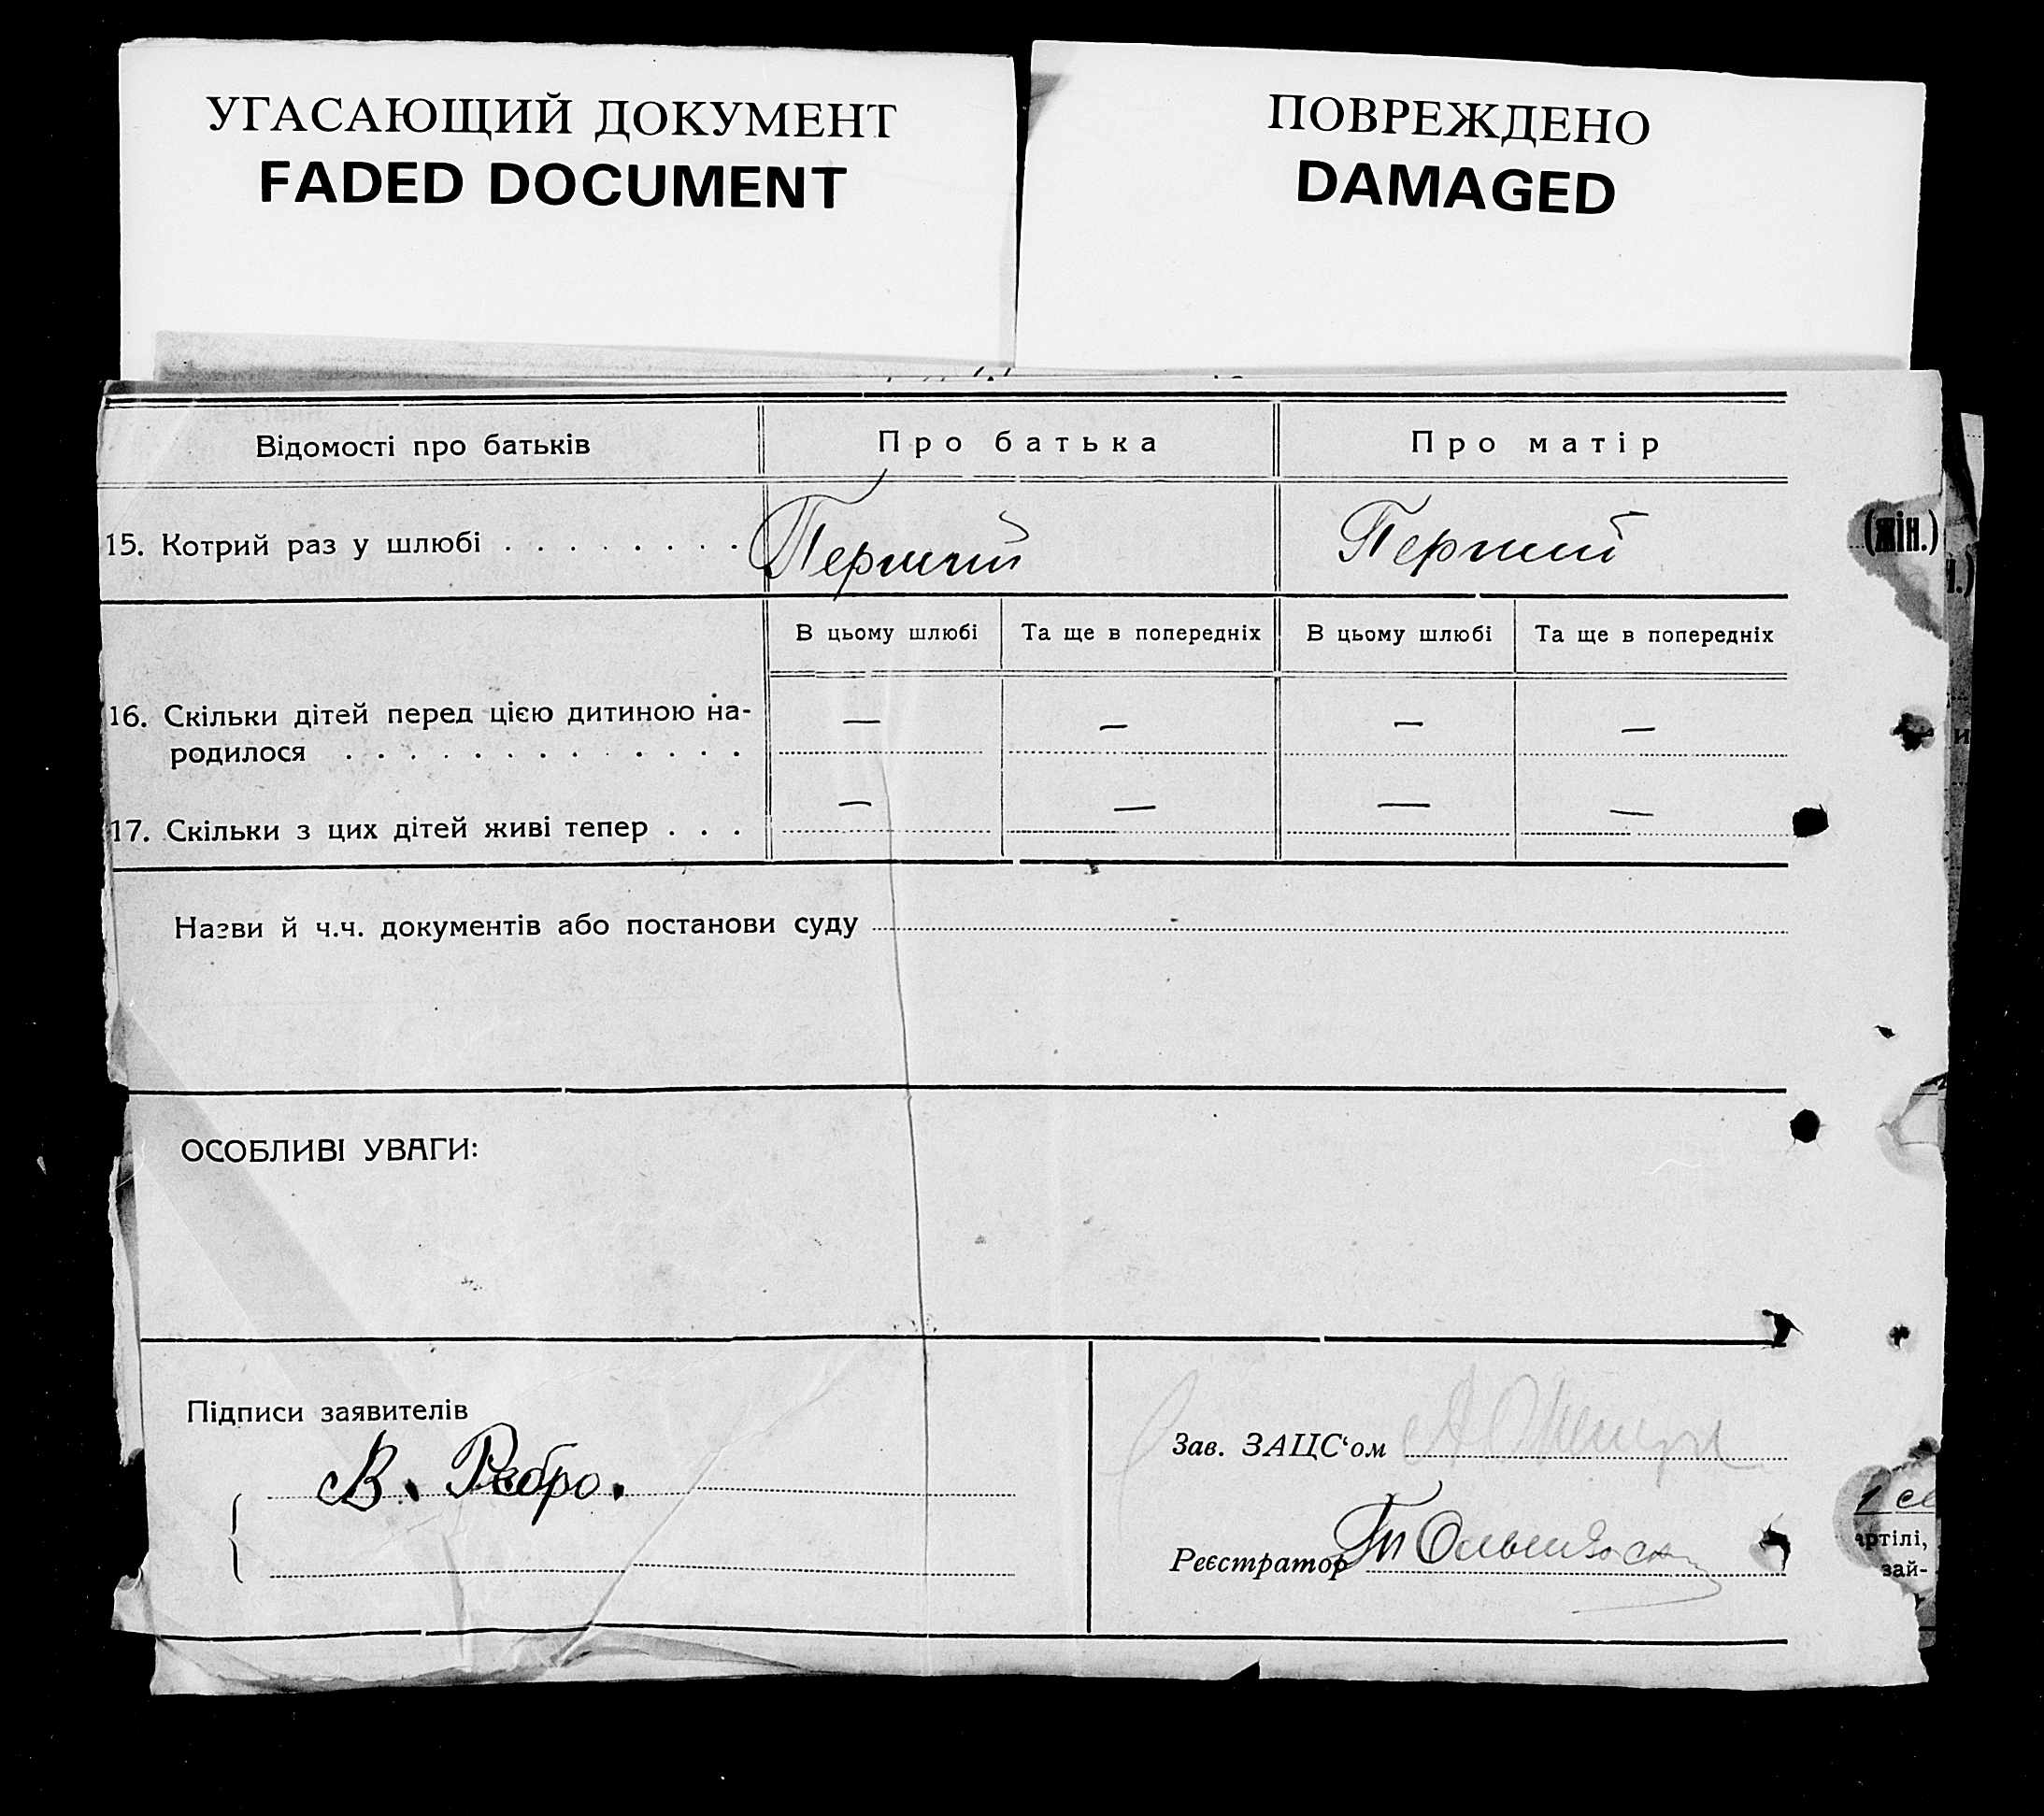 УГАСАЮЩИЙ ДОКУМЕНТ
FADED DOCUMENT
ПОВРЕЖДЕНО
DAMAGED
Відомості про батьків
Про батька
Про матір
15. Котрий раз у шлюбі . . . . . . . .
Перший
Перший
(жін.)
В цьому шлюбі
Та ще в попередніх
В цьому шлюбі
Та ще в попередніх
16. Скільки дітей перед цією дитиною на-
родилося . . . . . . . . . . . . .
— — — —
17. Скільки з цих дітей живі тепер . . .
— — — —
Назви й ч.ч. документів або постанови суду
ОСОБЛИВІ УВАГИ:
Підписи заявителів
В. Ребро.
Зав. ЗАЦС‘ом
Реєстратор
артілі,
зай-